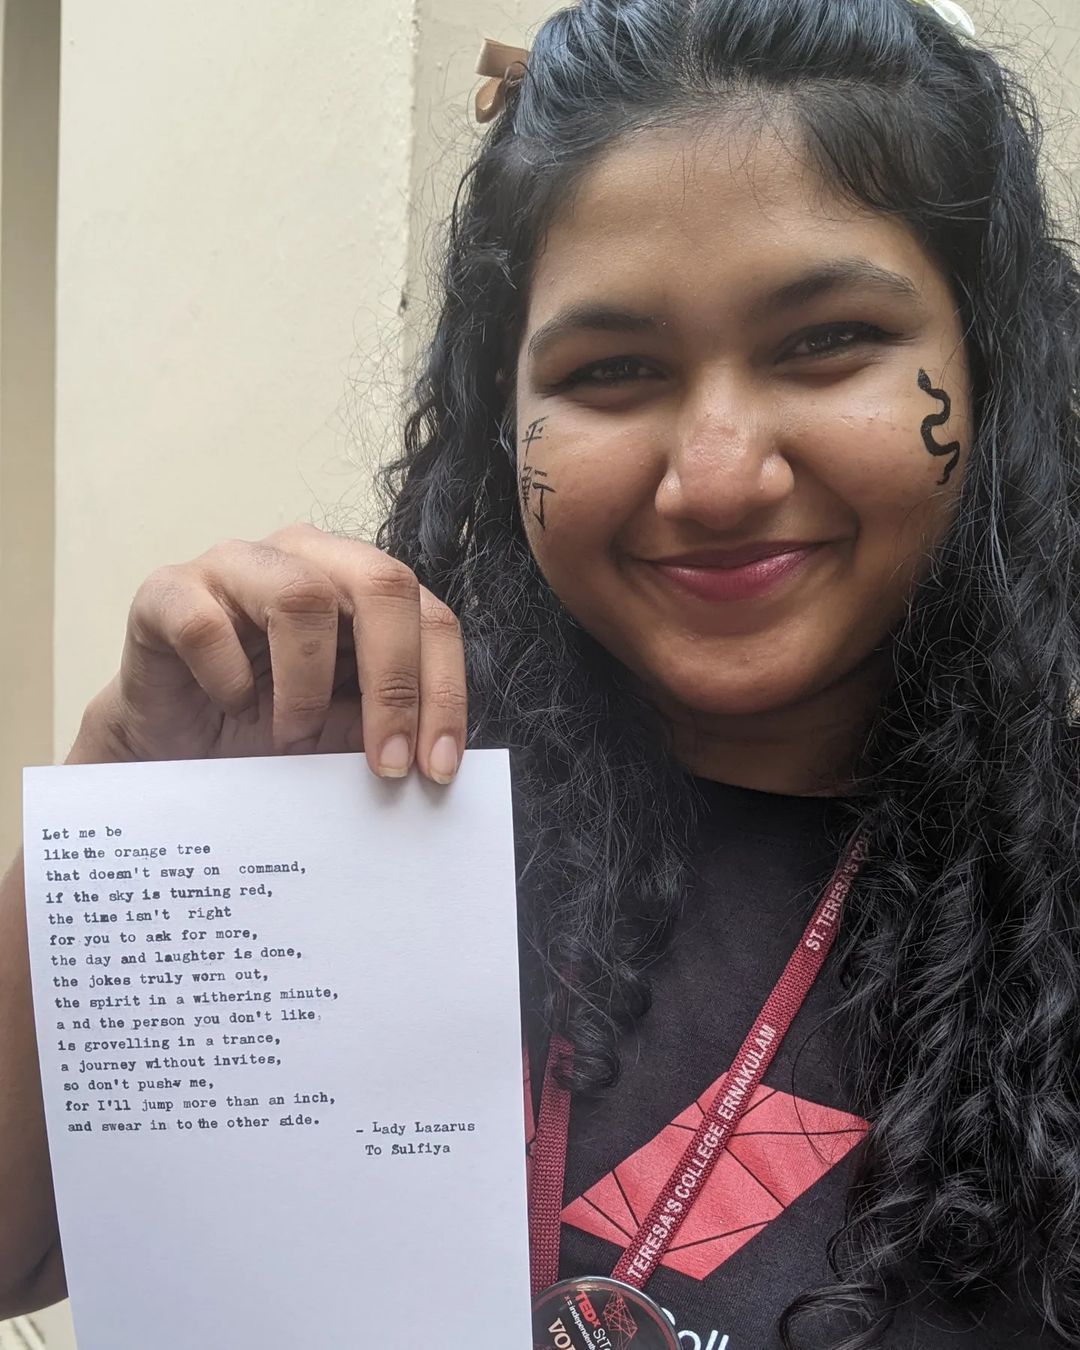 平
衡
Let me be
like the orange tree
that doesn't sway on  command,
if the sky is turning red,
the time isn't  right
for you to ask for more,
the day and laughter is done,
the jokes truly worn out,
the spirit in a withering minute,
a nd the person you don't like,
is grovelling in a trance,
a journey without invites,
so don't push me,
for I'll jump more than an inch,
and swear in to the other side.
- Lady Lazarus
To Sulfiya
ST. TERESA'S CO
TERESA'S COLLEGE, ERNAKULAM
TEDx
x = independently